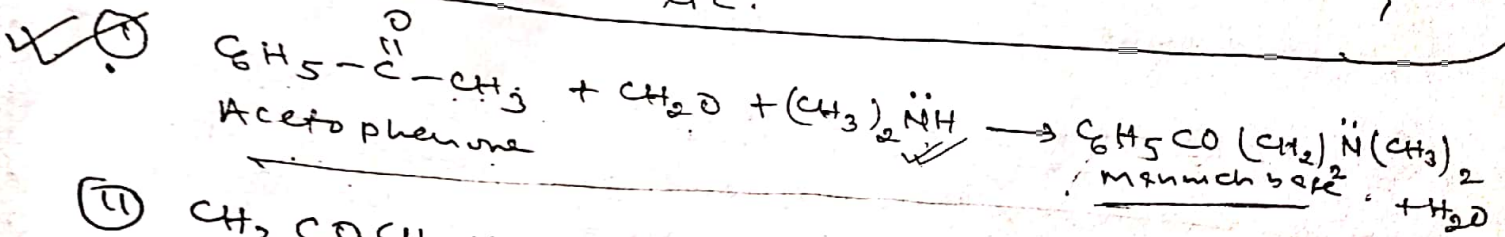 ① C6H5-C(=O)-CH3 + CH2O + (CH3)2N̈H → C6H5CO(CH2)2N̈(CH3)2
Acetophenone Mannich base. + H2O
⑪ CH3COCH